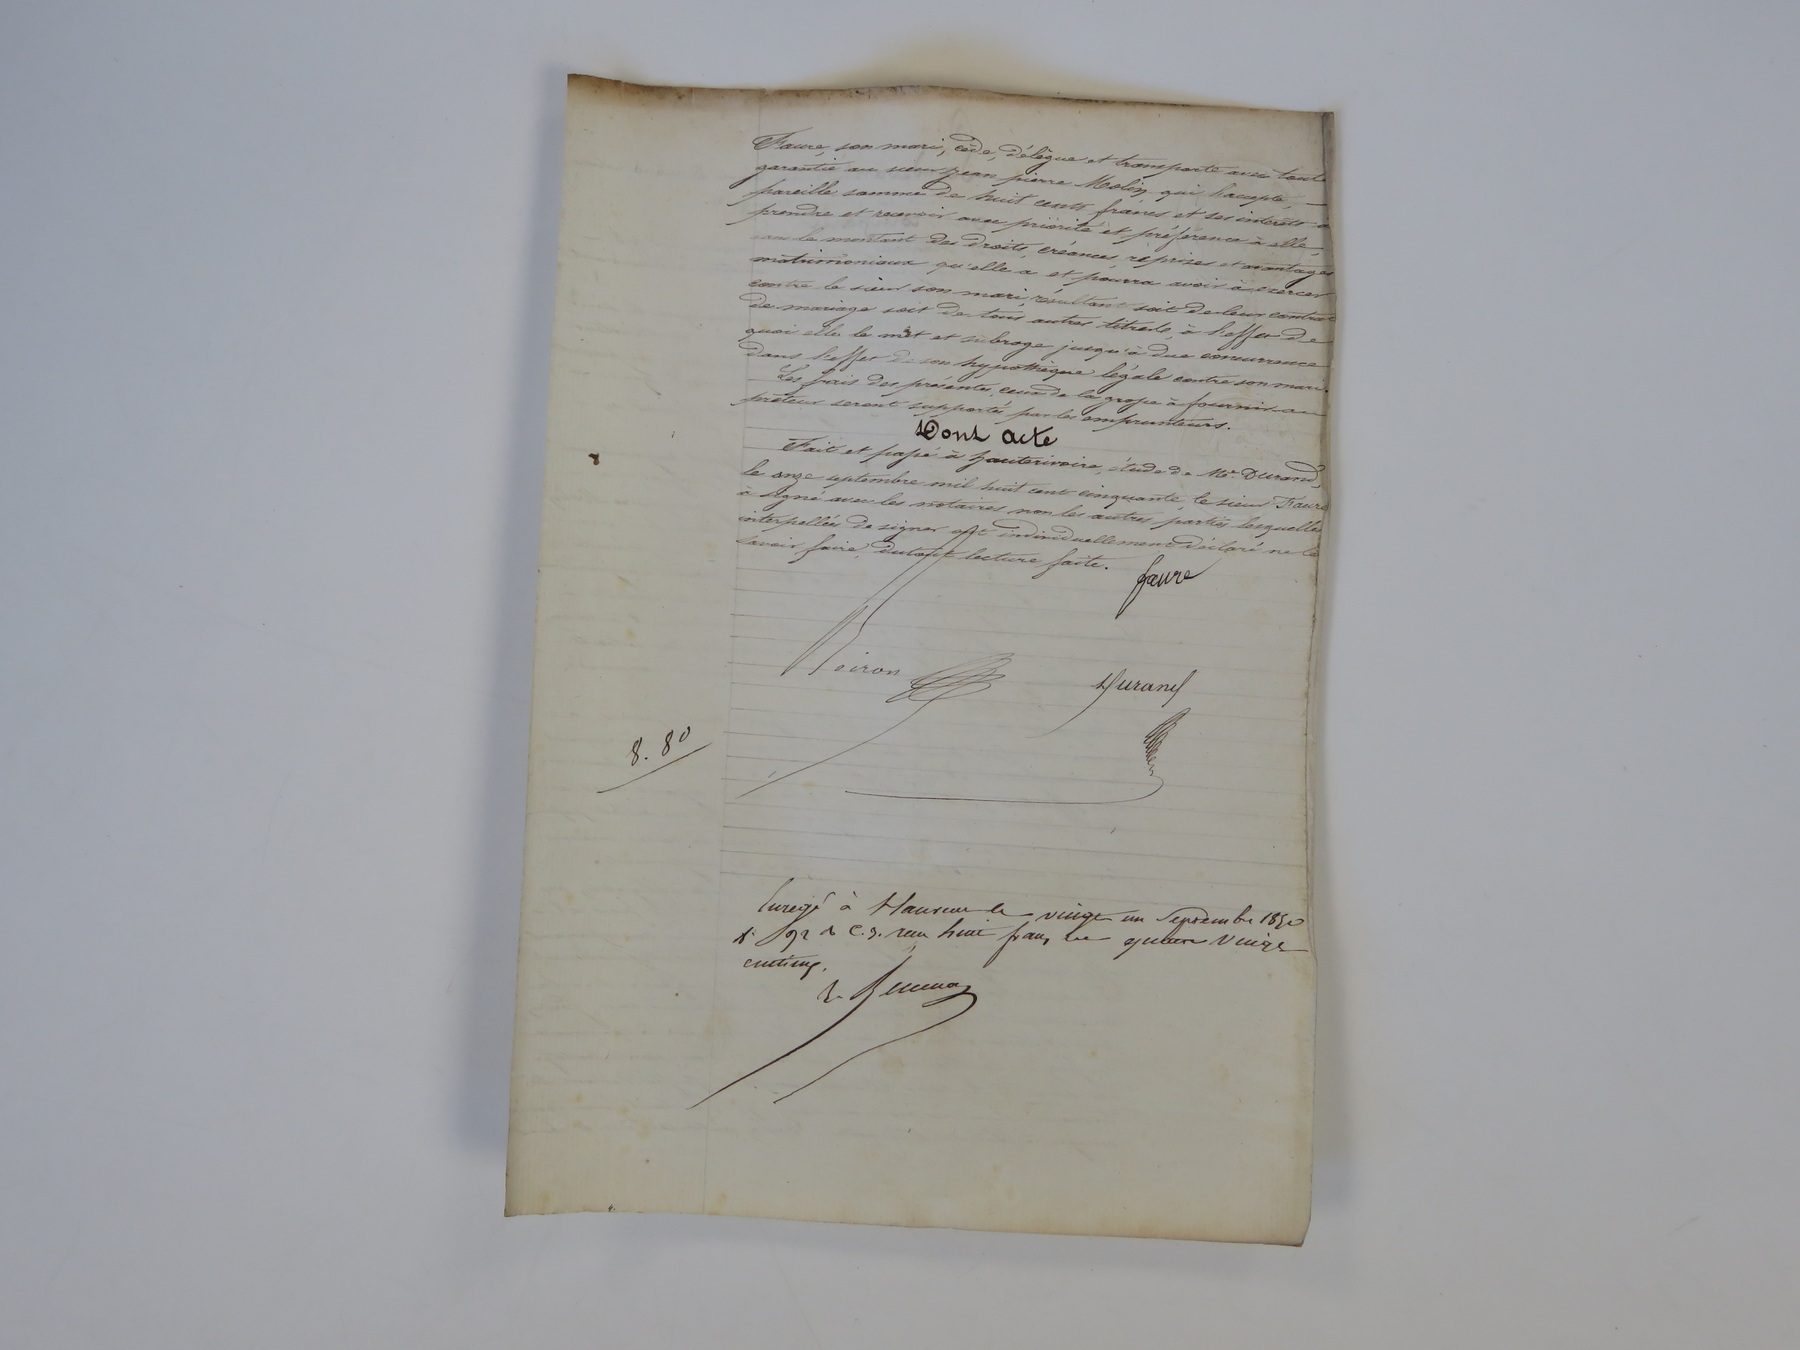 Faure, son mari, cède, délègue et transporte avec toute
garantie au sieur Jean pierre Molin qui l'accepte, —
pareille somme de huit cents francs et ses intérêts à
prendre et recevoir avec priorité et préférence à elle,
sur le montant des droits, créances, reprises et avantages
matrimoniaux qu'elle a et pourra avoir à exercer
contre le sieur son mari, résultant soit de leur contrat
de mariage soit de tous autres titres, à l'effet de
quoi elle le met et subroge jusqu'à due concurrence
dans l'effet de son hypothèque légale contre son mari.
Les frais des présentes, ceux de la grosse à fournir au
prêteur seront supportés par les emprunteurs.
Dont acte
Fait et passé à hauterivoire, étude de Me Durand,
le onze septembre mil huit cent cinquante, le sieur Faure
a signé avec les notaires non les autres parties lesquelles
interpellées de signer ont individuellement déclaré ne le
savoir faire, lecture faite.
faure
Durand
8. 80
Enregé à le vingt un Septembre 1850
f° 92 C. 9. reçu huit francs quatre vingt
centimes.